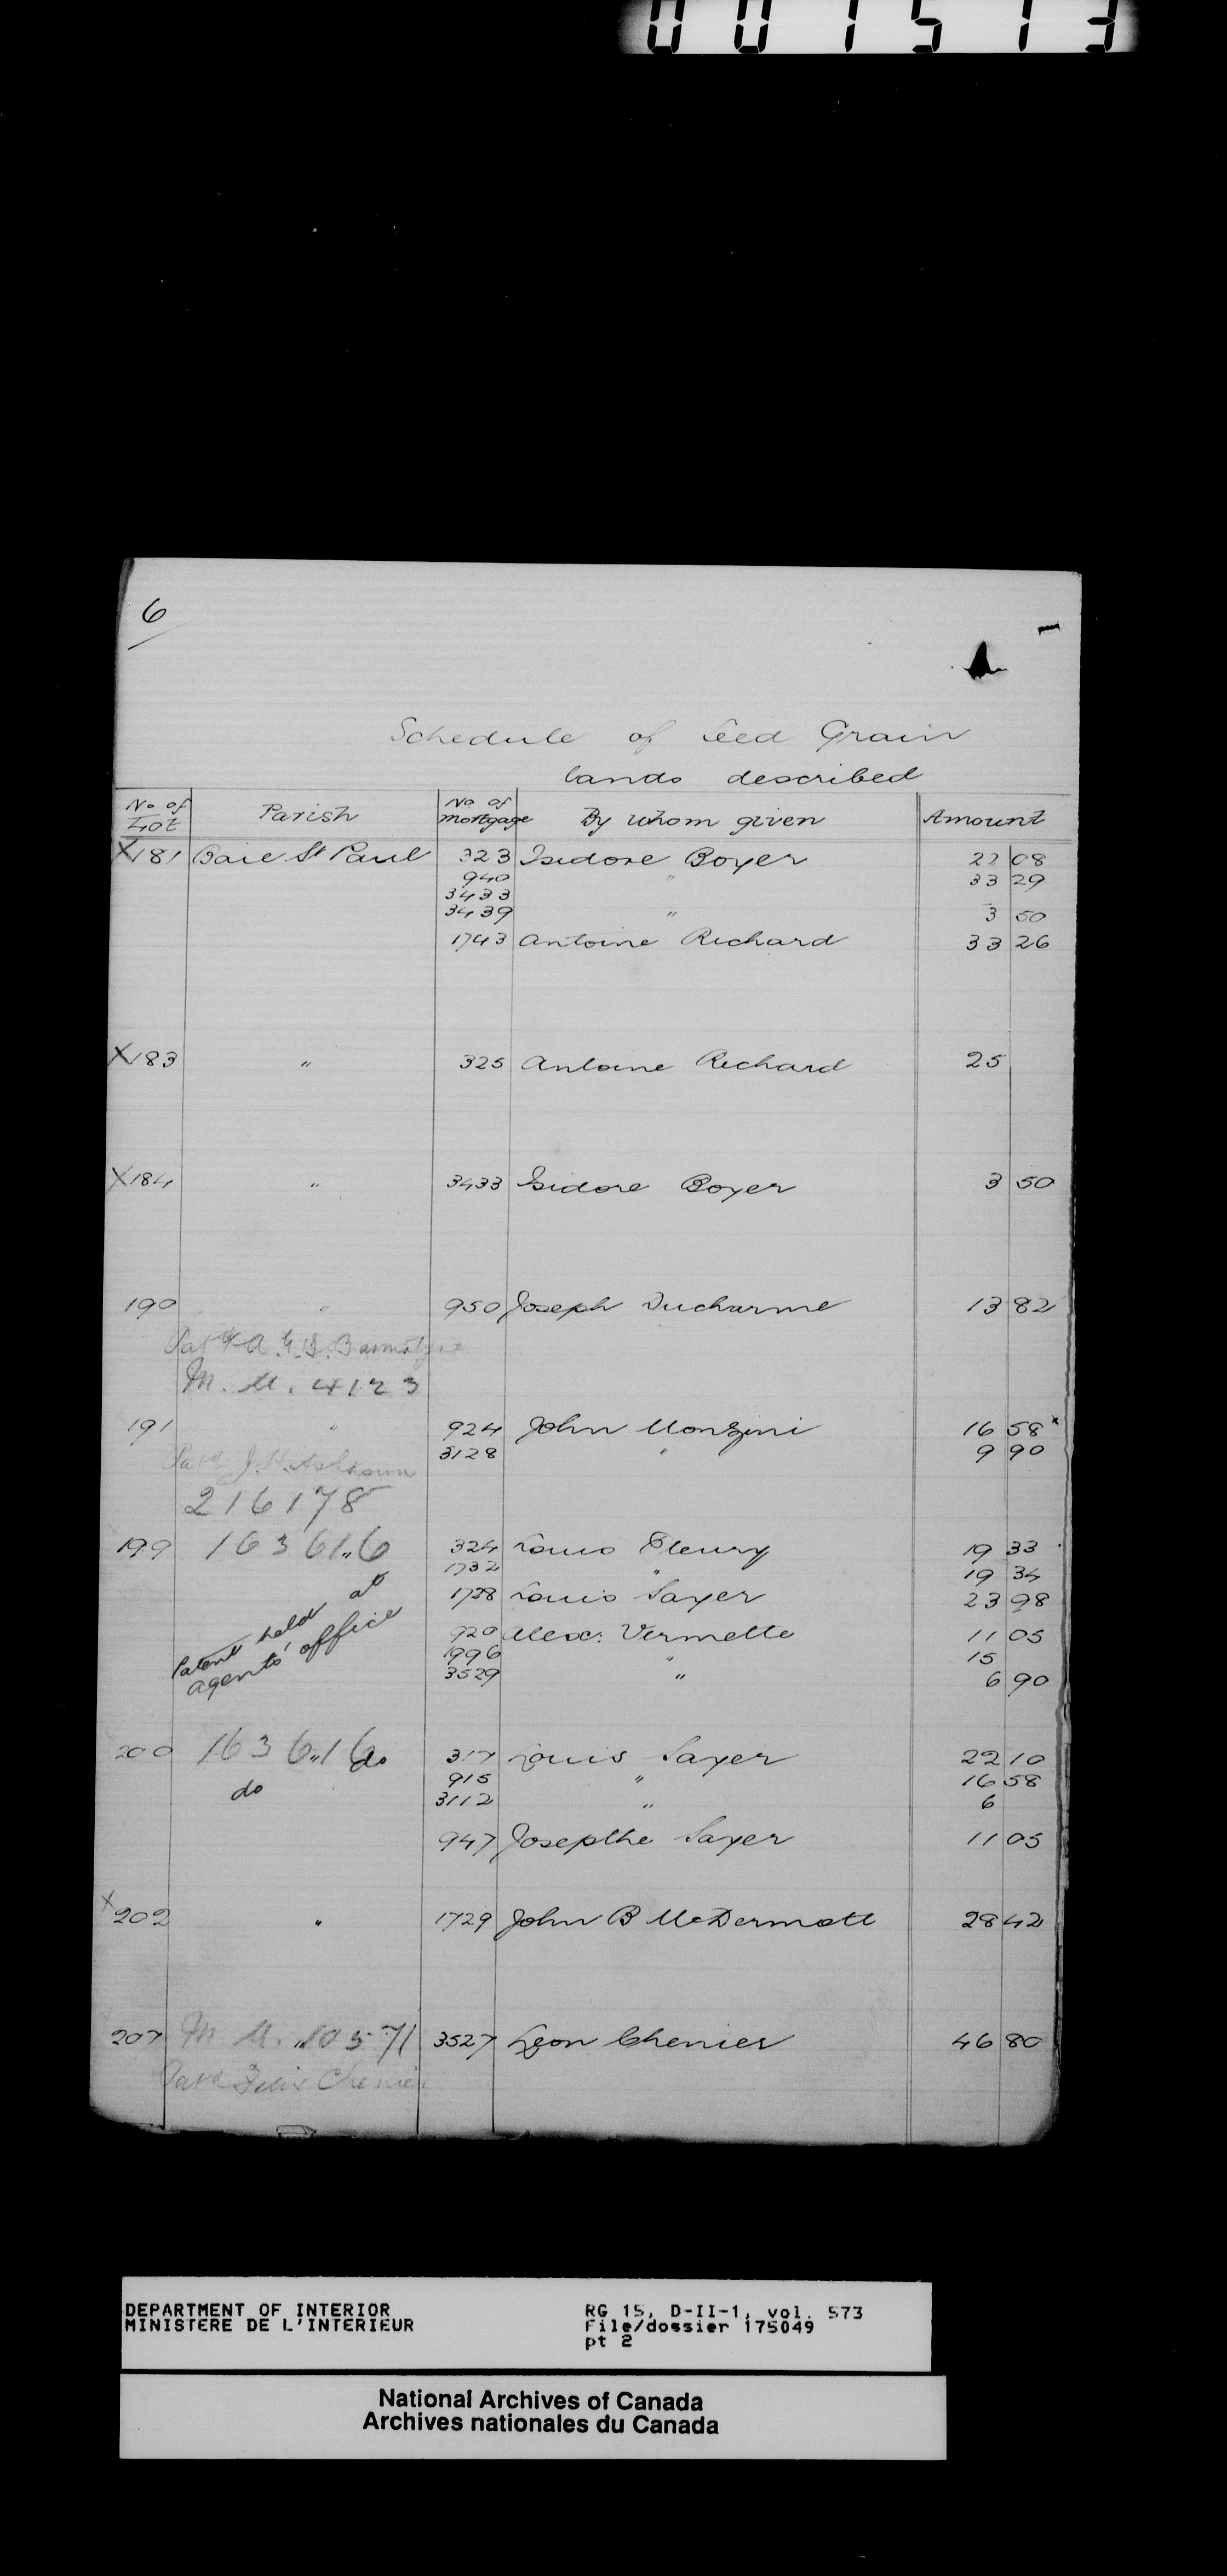 001513
6
Schedule of Seed Grain
lands described
No of Lot Parish No of mortgage By whom given Amount
X181 Baie St Paul 323 Isidore Boyer 22 08
940 " 33 29
3433
3439 " 3 50
1743 Antoine Richard 33 26
X183 " 325 Antoine Richard 25
X184 " 3433 Isidore Boyer 3 50
190 " 950 Joseph Ducharme 13 82
M. M. 4123
191 " 924 John Monzini 16 58x
3128 " 9 90
Patd J. H. Ashdown
216178
199 16361.,6 324 Louis Fleury 19 33
1732 " 19 34
1738 Louis Sayer 23 98
Patent held at
agents' office
920 Alex: Vermette 11 05
1996 " 15
3529 " 6 90
200 1636.,16 do 317 Louis Sayer 22 10
do 915 " 16 58
3112 " 6
947 Josepthe Sayer 11 05
x202 " 1729 John B McDermott 28 42
207 M. M. 10571 3527 Leon Chenier 46 80
Patd Felix Chenier
DEPARTMENT OF INTERIOR
MINISTERE DE L'INTERIEUR
RG 15, D-II-1, vol. 573
File/dossier 175049
pt 2
National Archives of Canada
Archives nationales du Canada